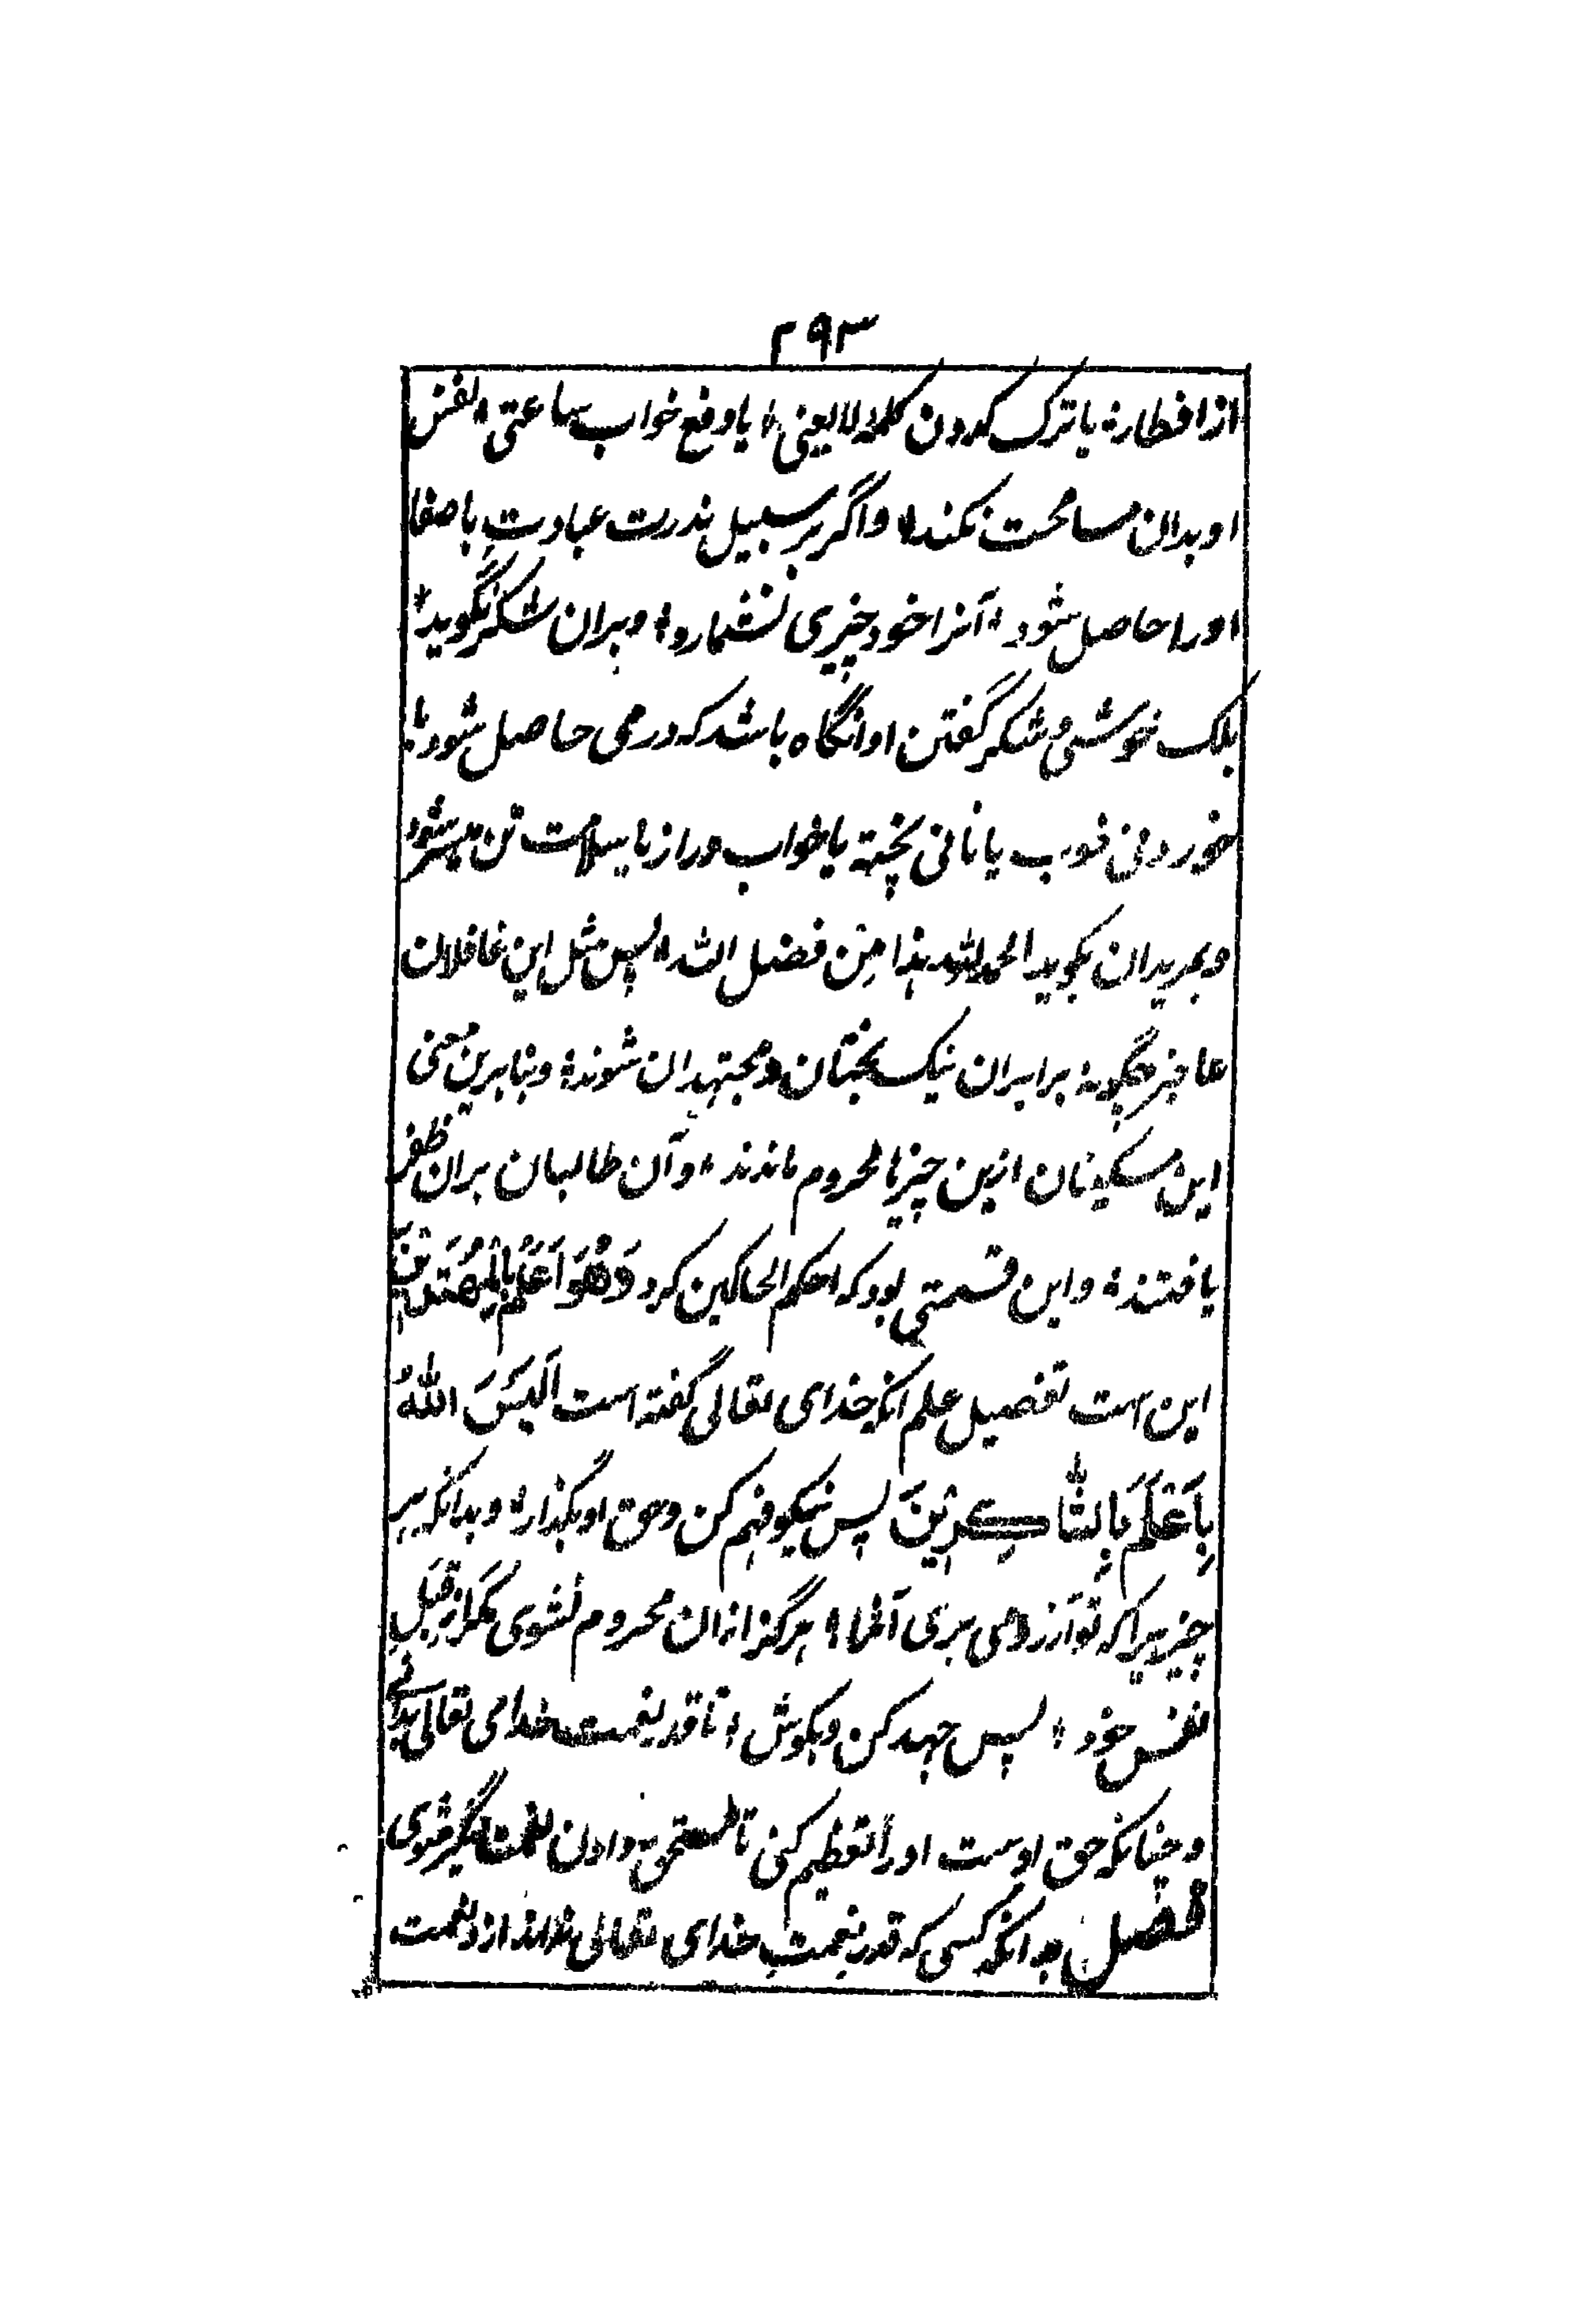 ۲۹۳
از افطار؛ یا ترک کردن کلمهٔ لایعنی؛ یا دفع خواب ساعتی؛ نفس
او بدان مسامحت نکند؛ و اگر بر سبیل ندرت عبادتِ باصفا
اورا حاصل شود؛ آنرا خود چیزی نشمارد؛ و بران شکر نگوید؛
بلک خوشی و شکر گفتن او انگاه باشد که درمی حاصل شود؛ یا
خوردنی خوب یا نانی پخته یا خواب دراز با سلامت تن میسر شود
و بمریدان بگوید الحمد لله هذا مِن فضل الله؛ پس مثل این غافلان
عاجز چگونه برابران نیک بختان و مجتهدان شوند؛ و بنابرین معنی
این مسکینان ازین چیزها محروم ماندند؛ و آن طالبان بران ظفر
یافتند؛ و این قسمتی بود که احکم الحاکمین کرد وَهُوَ اَعْلَمُ بِالْمُهْتَدِیْنَ
این است تفصیل علم انکه خدای تعالی گفته است اَلَیْسَ اللهُ
بِاَعْلَمَ بِالشَّاکِرِیْنَ پس نیکو فهم کن و حق او بگذار؛ و بدانکه هر
چیزیرا که تو آرزو می بری آنها؛ هرگز ازان محروم نشوی مگر از قِبَلِ
نفس خود؛ پس جهد کن و بکوش؛ تا قدر نعمت خدای تعالی بدانی
و چنانکه حق اوست اورا تعظیم کنی تا مستحق دادن نعمت دیگر شوی
فصل بدانکه کسی که قدر نعمتِ خدای تعالی نداند ازو نعمت